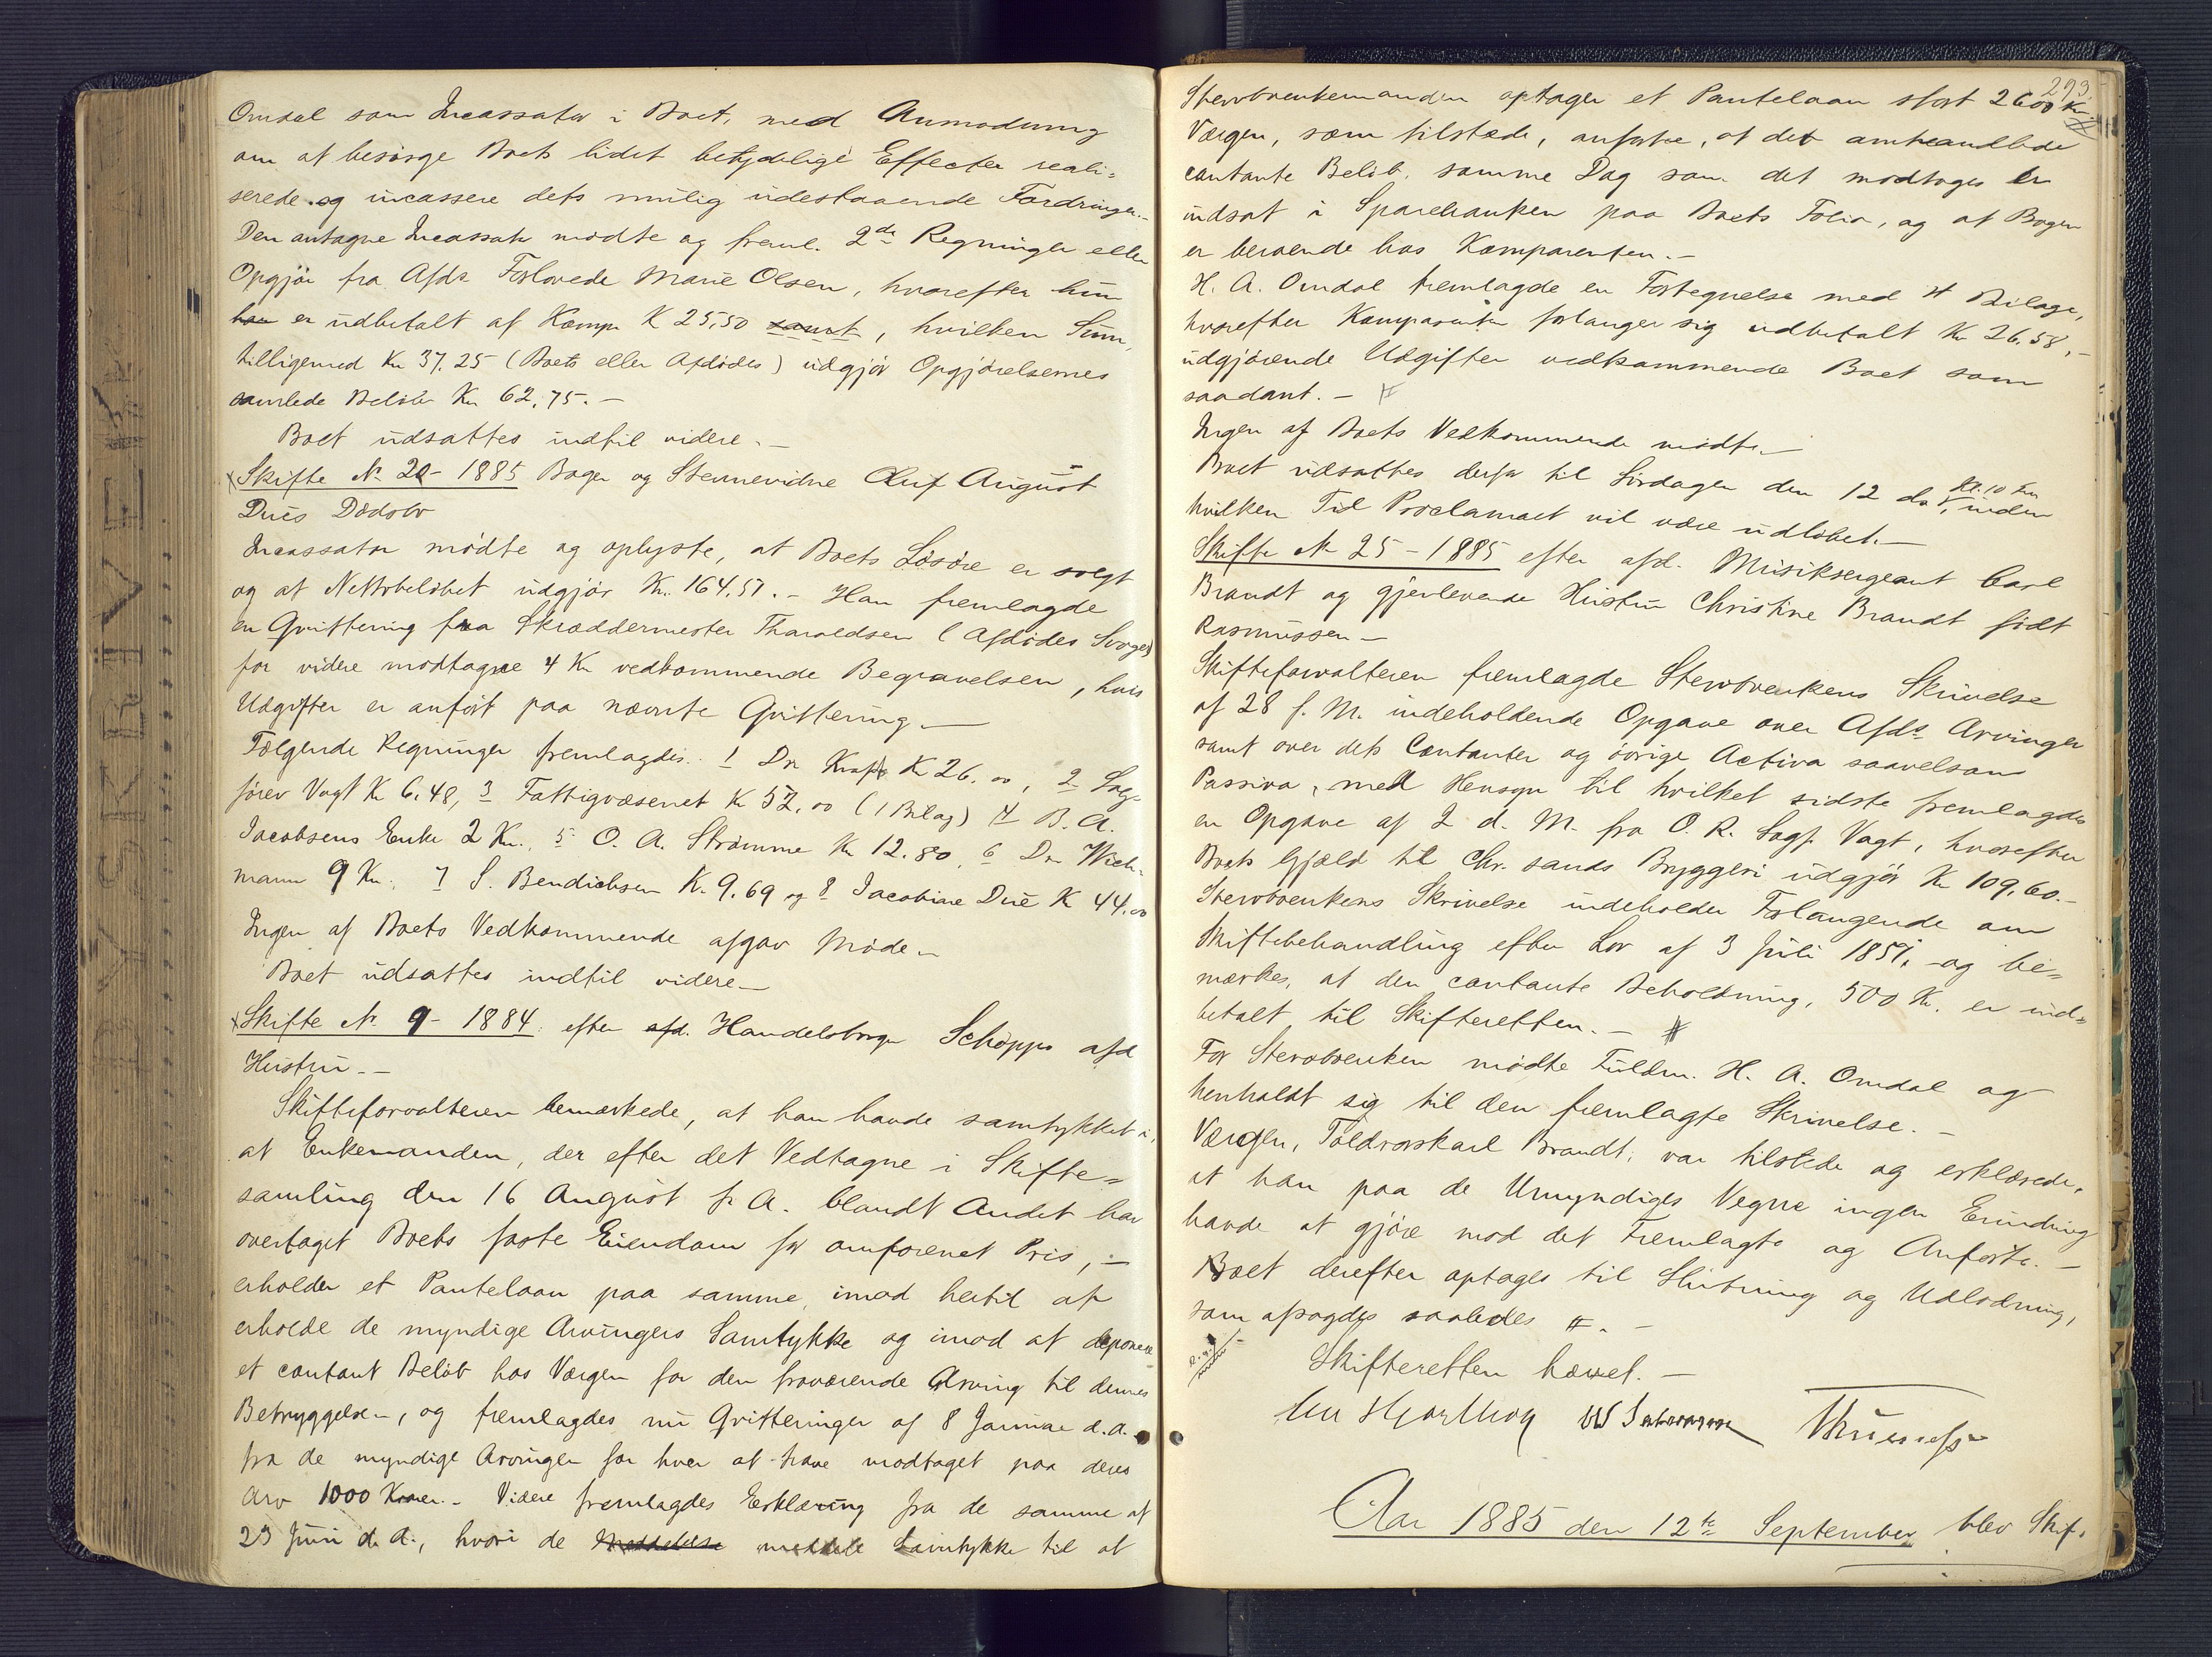 Omdal som Incassator i Boet, med Anmodning
om at besörge Boets lidet betydelige Effecter reali=
serede og incassere dets mulig udestaaende Fordringer.-
Den antagne Incassator mødte og freml. 2de Regninger eller
Opgjör fra Afdes Forlovede Marie Olsen, hvorefter hun
han er udbetalt af Komp. K 25,50 samt, hvilken Sum,
tilligemed Kr 37.25 (Boets eller Afdödes) udgjör Opgjörelsernes
samlede Belöb Kr 62,75.-
Boet udsattes indtil videre.-
Skifte No 20 - 1885 Bager og Stevnevidne Oluf August
Dues Dödsbo
Incassator mødte og oplyste, at Boets Lösöre er solgt
og at Nettobelöbet udgjör Kr. 164.57.- Han fremlagde
en Qvittering fra Skræddermester Tharaldsen (Afdödes Svoger)
for videre modtagne 4 Kr vedkommende Begravelsen, hvis
Udgifter er anfört paa nævnte Qvittering.-
Følgende Regninger fremlagdes: 1 Dr Kraft K 26.00, 2 Sag-
förer Vogt K 6.48, 3 Fattigvæsenet K 52.00 (1 Bilag) 4 B. A.
Jacobsens Enke 2 Kr., 5 O. A. Strömme Kr 12.80, 6 Dr Wich-
mann 9 Kr., 7 S. Bendichsen K. 9.69 og 8 Jacobine Due K 44.00
Ingen af Boets Vedkommende afgav Møde.-
Boet udsattes indtil videre-
Skifte No 9 - 1884 efter afd. Handelsborger Schöpps afd
Hustru.-
Skifteforvalteren bemærkede, at han havde samtykket i,
at Enkemanden, der efter det Vedtagne i Skifte=
samling den 16 August f. A. blandt Andet har
overtaget Boets faste Eiendom for omforenet Pris, -
erholder et Pantelaan paa samme, imod hertil at
erholde de myndige Arvingers Samtykke og imod at deponere
et contant Belöb hos Værgen for den fraværende Arving til dennes
Betryggelse, og fremlagdes nu Qvitteringer af 8 Januar d.A.
fra de myndige Arvinger for hver at have modtaget paa deres
Arv 1000 Kroner.- Videre fremlagdes Erklæring fra de samme af
23 Juni d. A., hvori de Meddelelse meddele Samtykke til at
293
Stervboenkemanden optager et Pantelaan stort 2600 Kr.
Værgen, som tilstede, anførte, at det omhandlede
contante Belöb samme Dag som det modtoges er
indsat i Sparebanken paa Boets Folio, og at Bogen
er beroende hos Komparenten.-
H. A. Omdal fremlagde en Fortegnelse med 4 Bilage,
hvorefter Komparenten forlanger sig udbetalt Kr 26.58,-
udgjørende Udgifter vedkommende Boet som
saadant.-
Ingen af Boets Vedkommende mødte.-
Boet udsattes derfor til Lördagen den 12 ds Kl. 10 Fm, inden
hvilken Tid Proclamaet vil være udlöbet.-
Skifte No 25 - 1885 efter afd. Musiksergeant Carl
Brandt og gjenlevende Hustru Christine Brandt født
Rasmussen-
Skifteforvalteren fremlagde Stervboenkens Skrivelse
af 28 f. M. indeholdende Opgave over Afdes Arvinger
samt over dets Contanter og övrige Activa saavelsom
Passiva, med Hensyn til hvilket sidste fremlagdes
en Opgave af 2 d. M. fra O. R. Sagf. Vogt, hvorefter
Boets Gjæld til Chr.sands Bryggeri udgjör Kr 109.60.-
Stervboenkens Skrivelse indeholder Forlangende om
Skiftebehandling efter Lov af 3 Juli 1851, og be=
mærkes, at den contante Beholdning, 500 Kr. er ind=
betalt til Skifteretten.-
For Stervboenken mødte Fuldm. H. A. Omdal og
henholdt sig til den fremlagte Skrivelse.-
Værgen, Toldroerskarl Brandt, var tilstede og erklærede,
at han paa de Umyndiges Vegne ingen Erindring
havde at gjöre mod det Fremlagte og Anførte.-
Boet derefter optages til Slutning og Udlodning,
som afsagdes saaledes #.-
Skifteretten hævet.-
Aar 1885 den 12te September blev Skif-